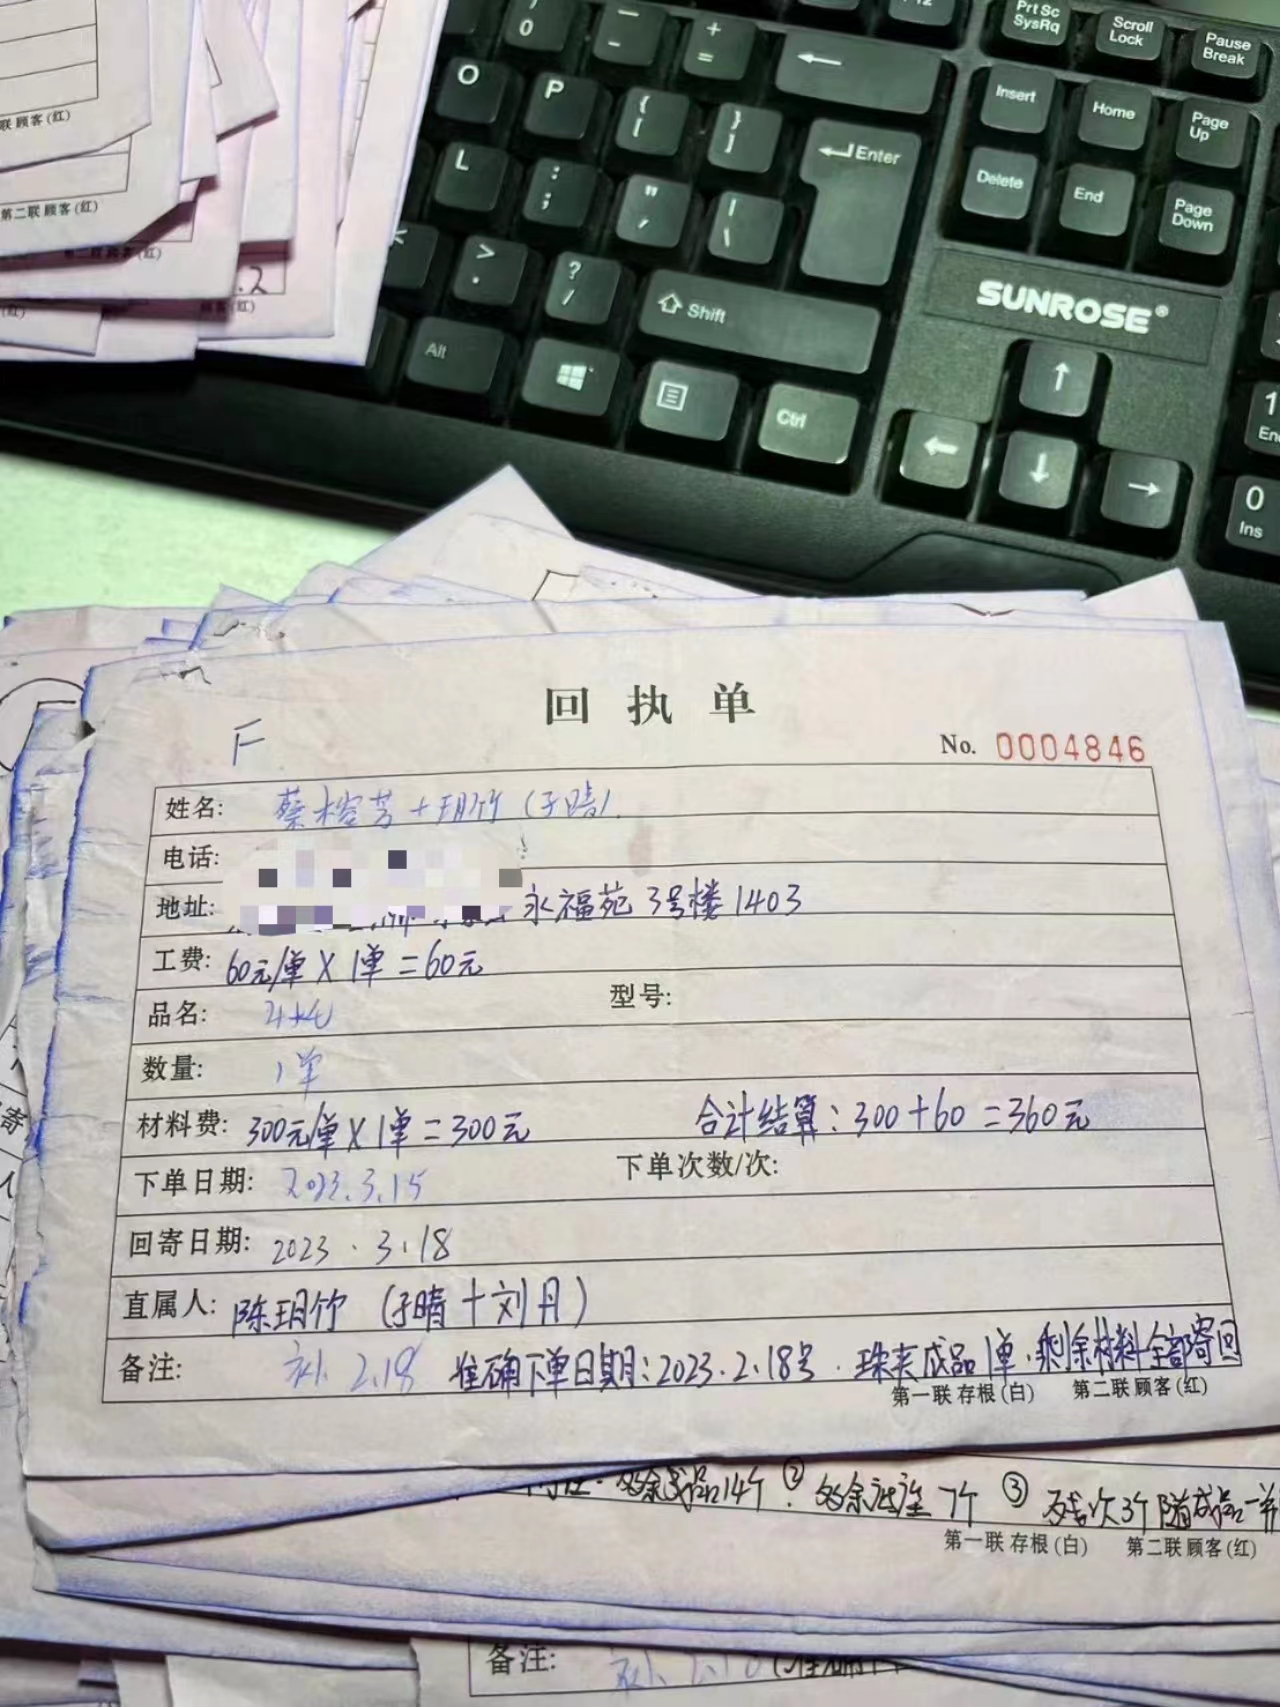 联 顾客(红)
第二联 顾客(红)
.2
) 0
— -
+ =
←
Prt Sc SysRq
Scroll Lock
Pause Break
O P { [ } ]
Enter
Insert Home Page Up
L : ; " ' | \
Delete End Page Down
> . ? /
Shift
SUNROSE®
Alt Ctrl
↑
← ↓ →
1 En
0 Ins
回执单
F
No. 0004846
姓名: 蔡榕芳+玥竹(子晴)
电话:
地址: 永福苑3号楼1403
工费: 60元/单×1单=60元
品名: 型号:
数量: 1单
材料费: 300元/单×1单=300元 合计结算:300+60=360元
下单日期: 2023.3.15 下单次数/次:
回寄日期: 2023.3.18
直属人: 陈玥竹(子晴+刘丹)
备注: 补2.18 准确下单日期:2023.2.18号.珠夹成品1单.剩余材料全部寄回
第一联 存根(白) 第二联 顾客(红)
多余成品14个 ② 多余 7个 ③ 残次3个随成品一并
第一联 存根(白) 第二联 顾客(红)
备注: